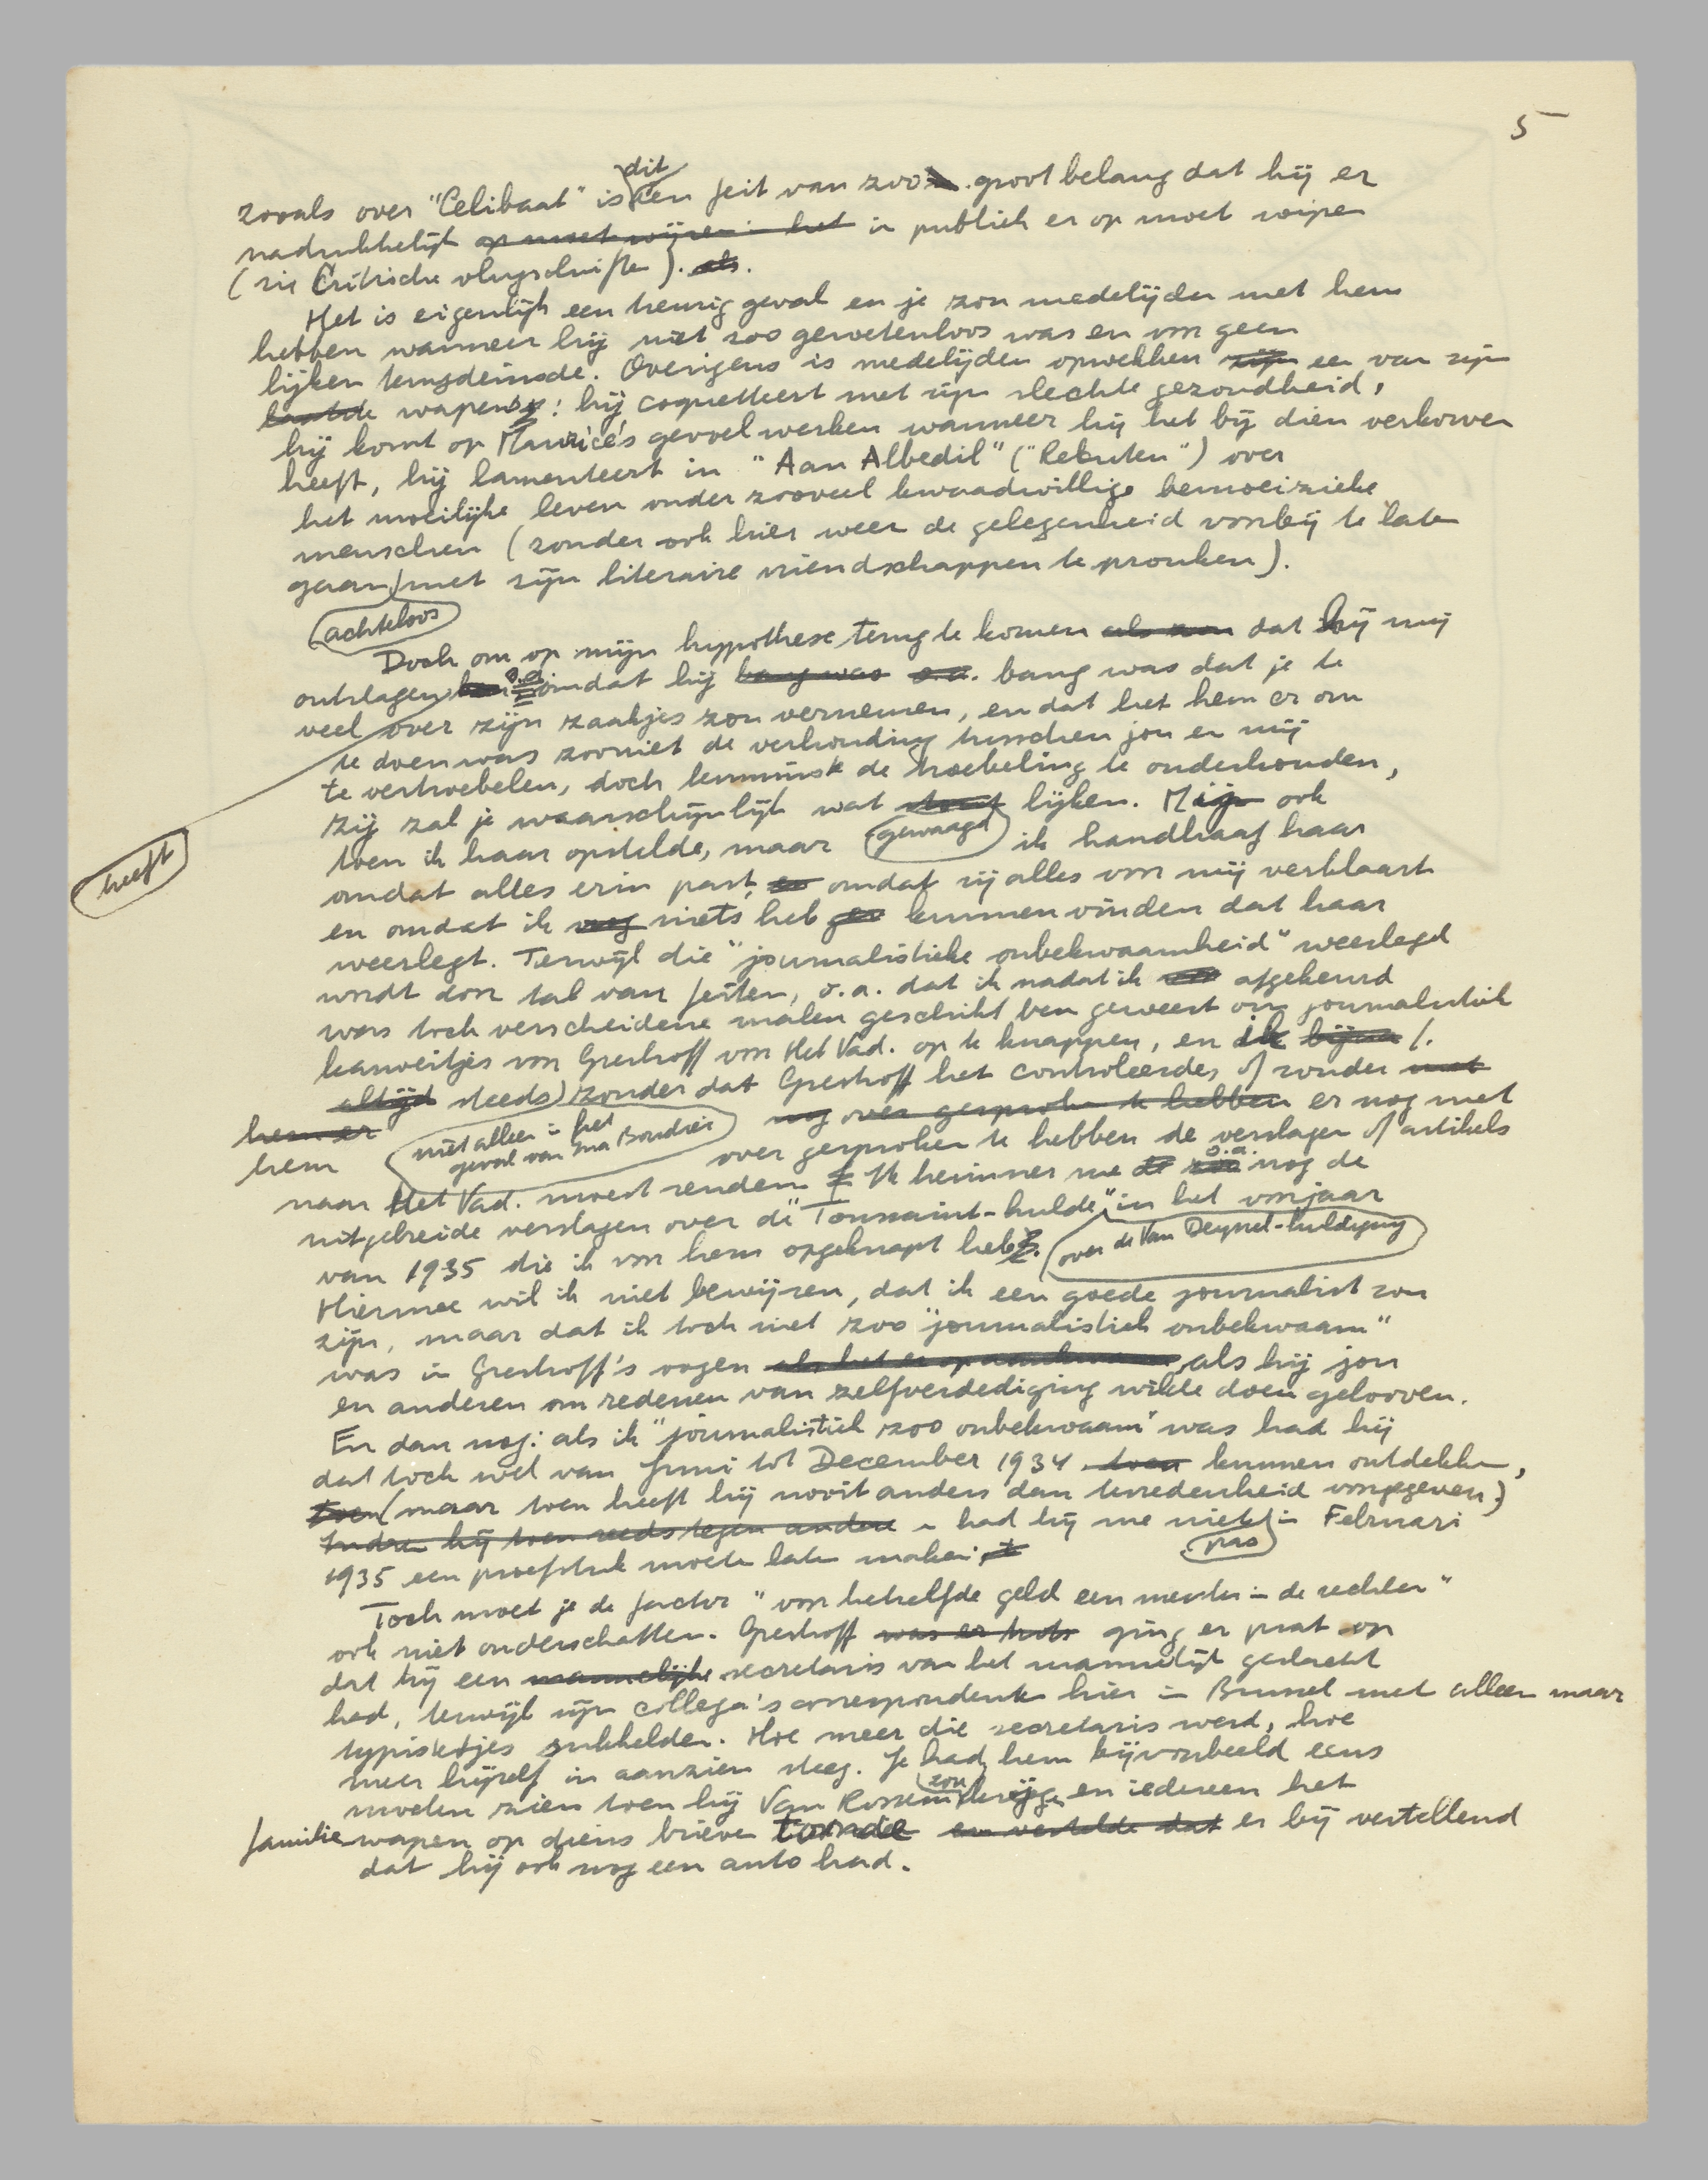 5
dit
zooals over "Celibaat" is een feit van zoo groot belang dat hij er
nadrukkelijk op moet wijzen in het in publiek er op moet wijzen
(zie Critische vlugschriften). als.
Het is eigenlijk een treurig geval en je zou medelijden met hem
hebben wanneer hij niet zoo gewetenloos was en voor geen
lijken terugdeinsde. Overigens is medelijden opwekken zijn een van zijn
laatste wapens: hij coquetteert met zijn slechte gezondheid,
hij komt op Maurice's gevoel werken wanneer hij het bij dien verkorven
heeft, hij lamenteert in "Aan Albedil" ("Rebuten") over
het moeilijke leven onder zooveel kwaadwillige bemoeizieke
menschen (zonder ook hier weer de gelegenheid voorbij te laten
gaan met zijn literaire vriendschappen te pronken).
achteloos
Doch om op mijn hypothese terug te komen dat hij mij
ontslagen o.a. omdat hij bang was o.a. bang was dat je te
veel over zijn zaakjes zou vernemen, en dat het hem er om
te doen was zooniet de verhouding tusschen jou en mij
te vertroebelen, doch tenminste de troebeling te onderhouden,
zij zal je waarschijnlijk wat stout lijken. Mijn ook
heeft
toen ik haar opstelde, maar gewaagd ik handhaaf haar
omdat alles erin past, en omdat zij alles voor mij verklaart
en omdat ik nog niets heb kunnen vinden dat haar
weerlegt. Terwijl die "journalistieke onbekwaamheid" weerlegd
wordt door tal van feiten, o.a. dat ik nadat ik afgekeurd
was toch verscheidene malen geschikt ben geweest om journalistiek
karweitjes voor Greshoff voor Het Vad. op te knappen, en ik bijna
altijd steeds zonder dat Greshoff het controleerde, of zonder met
hem er nog over gesproken te hebben er nog met
niet alleen in het
geval van Ina Boudier
hem over gesproken te hebben de verslagen of artikels
naar Het Vad. moest zenden. Ik herinner me o.a. nog de
uitgebreide verslagen over de "Toussaint-hulde" in het voorjaar
over de Van Deyssel-huldiging
van 1935 die ik voor hem opgeknapt heb.
Hiermee wil ik niet bewijzen, dat ik een goede journalist zou
zijn, maar dat ik toch niet zoo "journalistiek onbekwaam"
was in Greshoff's oogen als het er op aankwam, als hij jou
en anderen om redenen van zelfverdediging wilde doen gelooven.
En dan nog: als ik "journalistiek zoo onbekwaam" was had hij
dat toch wel van Juni tot December 1934 toen kunnen ontdekken,
toen (maar toen heeft hij nooit anders dan tevredenheid voorgegeven)
Indien hij toen reeds tegen andere had hij me niet in Februari
pas
1935 een proefstuk moeten laten maken
Toch moet je de factor "voor hetzelfde geld een meester in de rechten"
ook niet onderschatten. Greshoff was er trots ging er prat op
dat hij een mannelijke secretaris van het mannelijk geslacht
had, terwijl zijn collega's correspondenten hier in Brussel met alleen maar
typistetjes sukkelden. Hoe meer die secretaris werd, hoe
meer hijzelf in aanzien steeg. Je had hem bijvoorbeeld eens
zou
moeten zien toen hij Van Rossem en iedereen het
familiewapen op diens brieven toonde en vertelde dat er bij vertellend
dat hij ook nog een auto had.